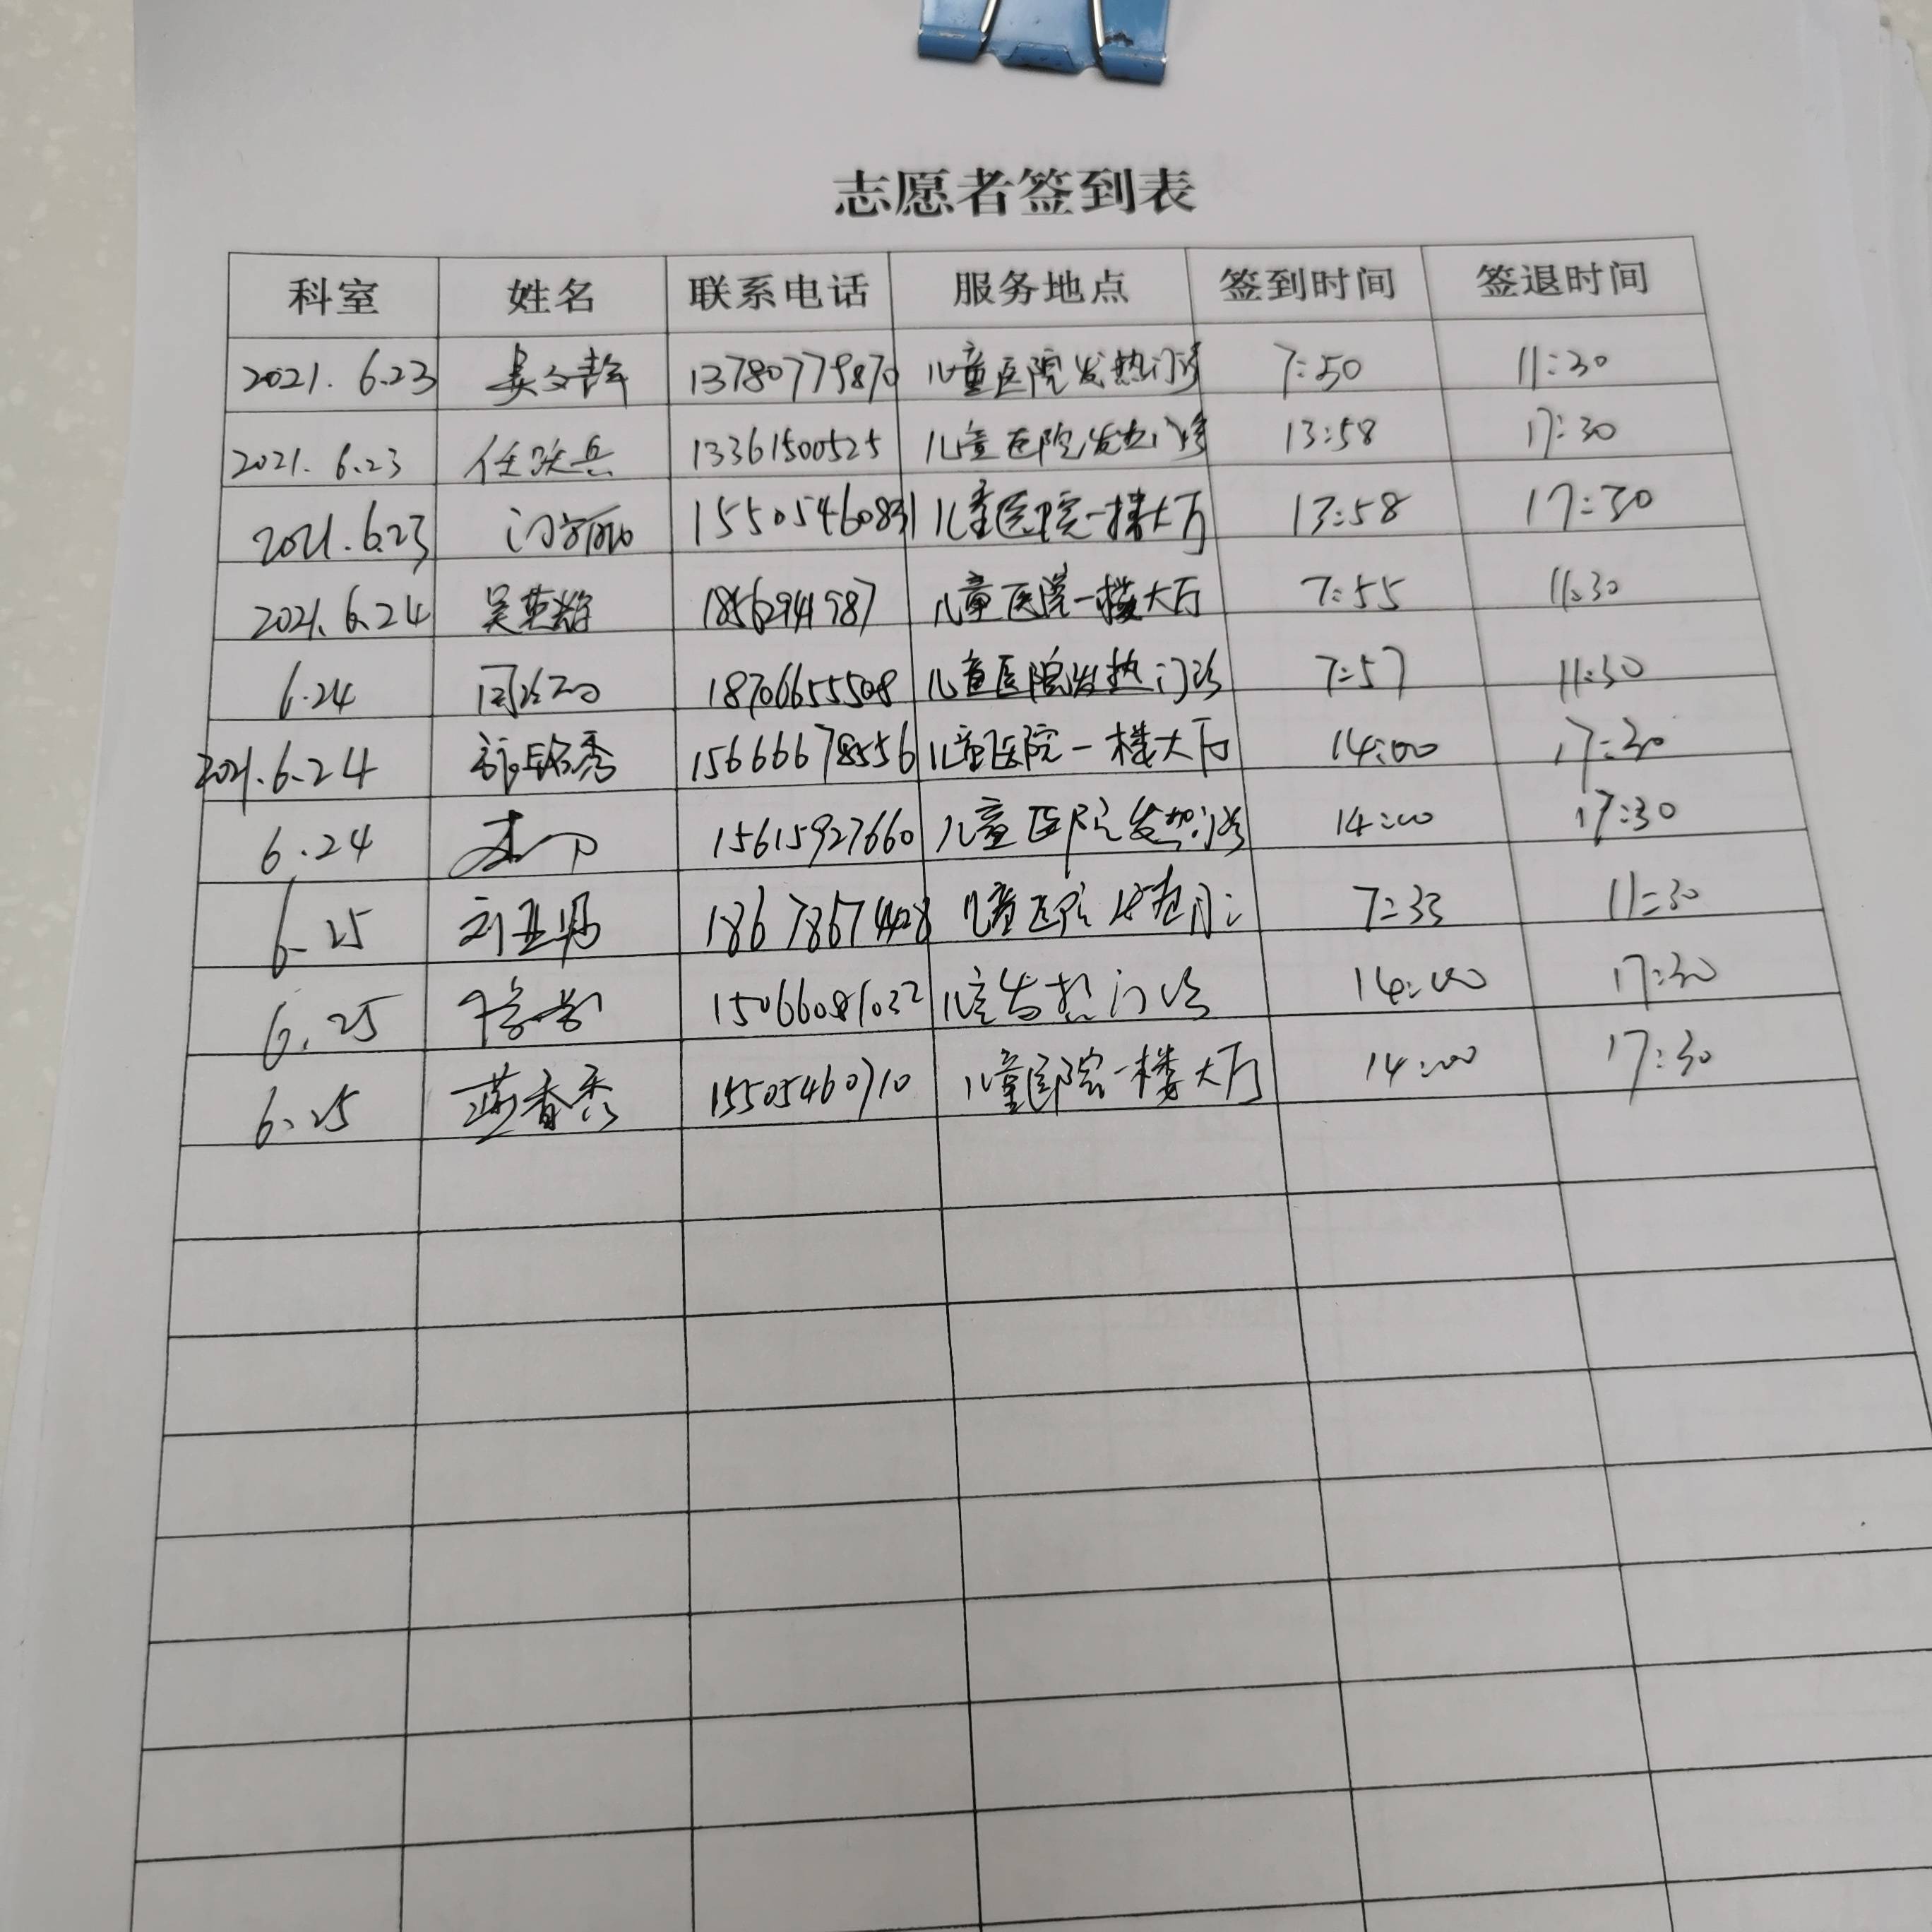 志愿者签到表
科室 姓名 联系电话 服务地点 签到时间 签退时间
2021. 6.23 吴文静 13780779870 儿童医院发热门诊 7:50 11:30
2021. 6.23 任跃兵 13361500525 儿童医院发热门诊 13:58 17:30
2021. 6.23 15505460831 儿童医院一楼大厅 13:58 17:30
2021. 6.24 吴英雄 18562941987 儿童医院一楼大厅 7:55 11:30
6.24 18706655508 儿童医院发热门诊 7:57 11:30
2021. 6.24 15666678556 儿童医院一楼大厅 14:00 17:30
6.24 15615927660 儿童医院发热门诊 14:00 17:30
6.25 18678674428 儿童医院 7:33 11:30
6.25 发热门诊 14:00 17:30
6.25 燕香秀 15505460710 儿童医院一楼大厅 14:00 17:30